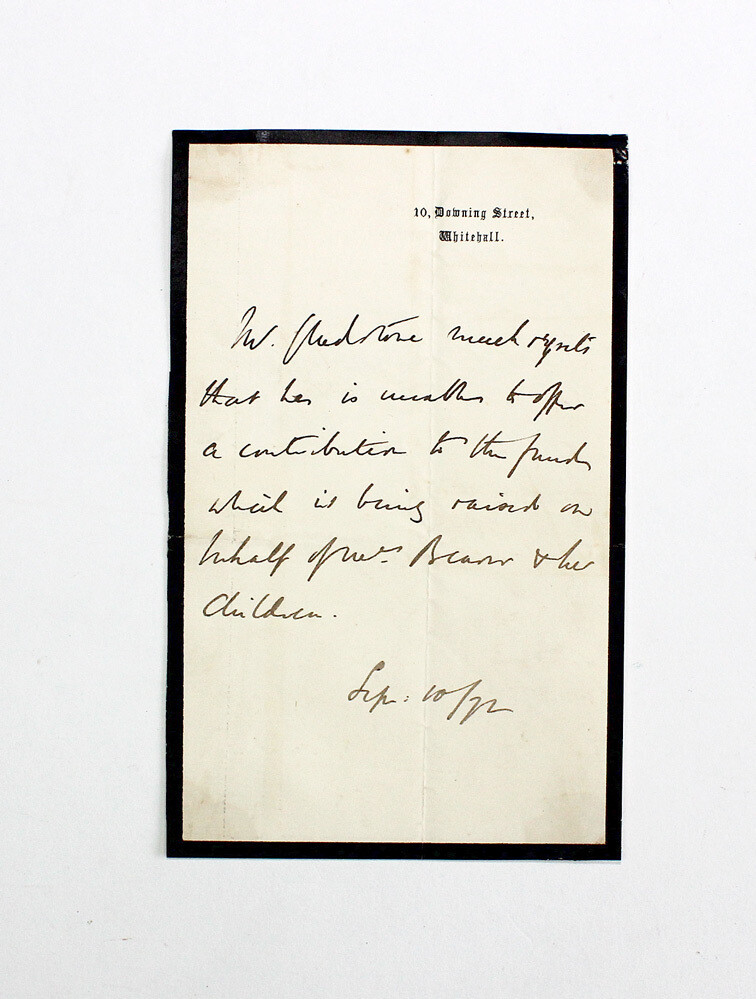 10, Downing Street,
Whitehall.
Mr. Gladstone much regrets
that he is unable to offer
a contribution to the fund
which is being raised on
behalf of Mrs. & her
Children.
Sep: 10/72